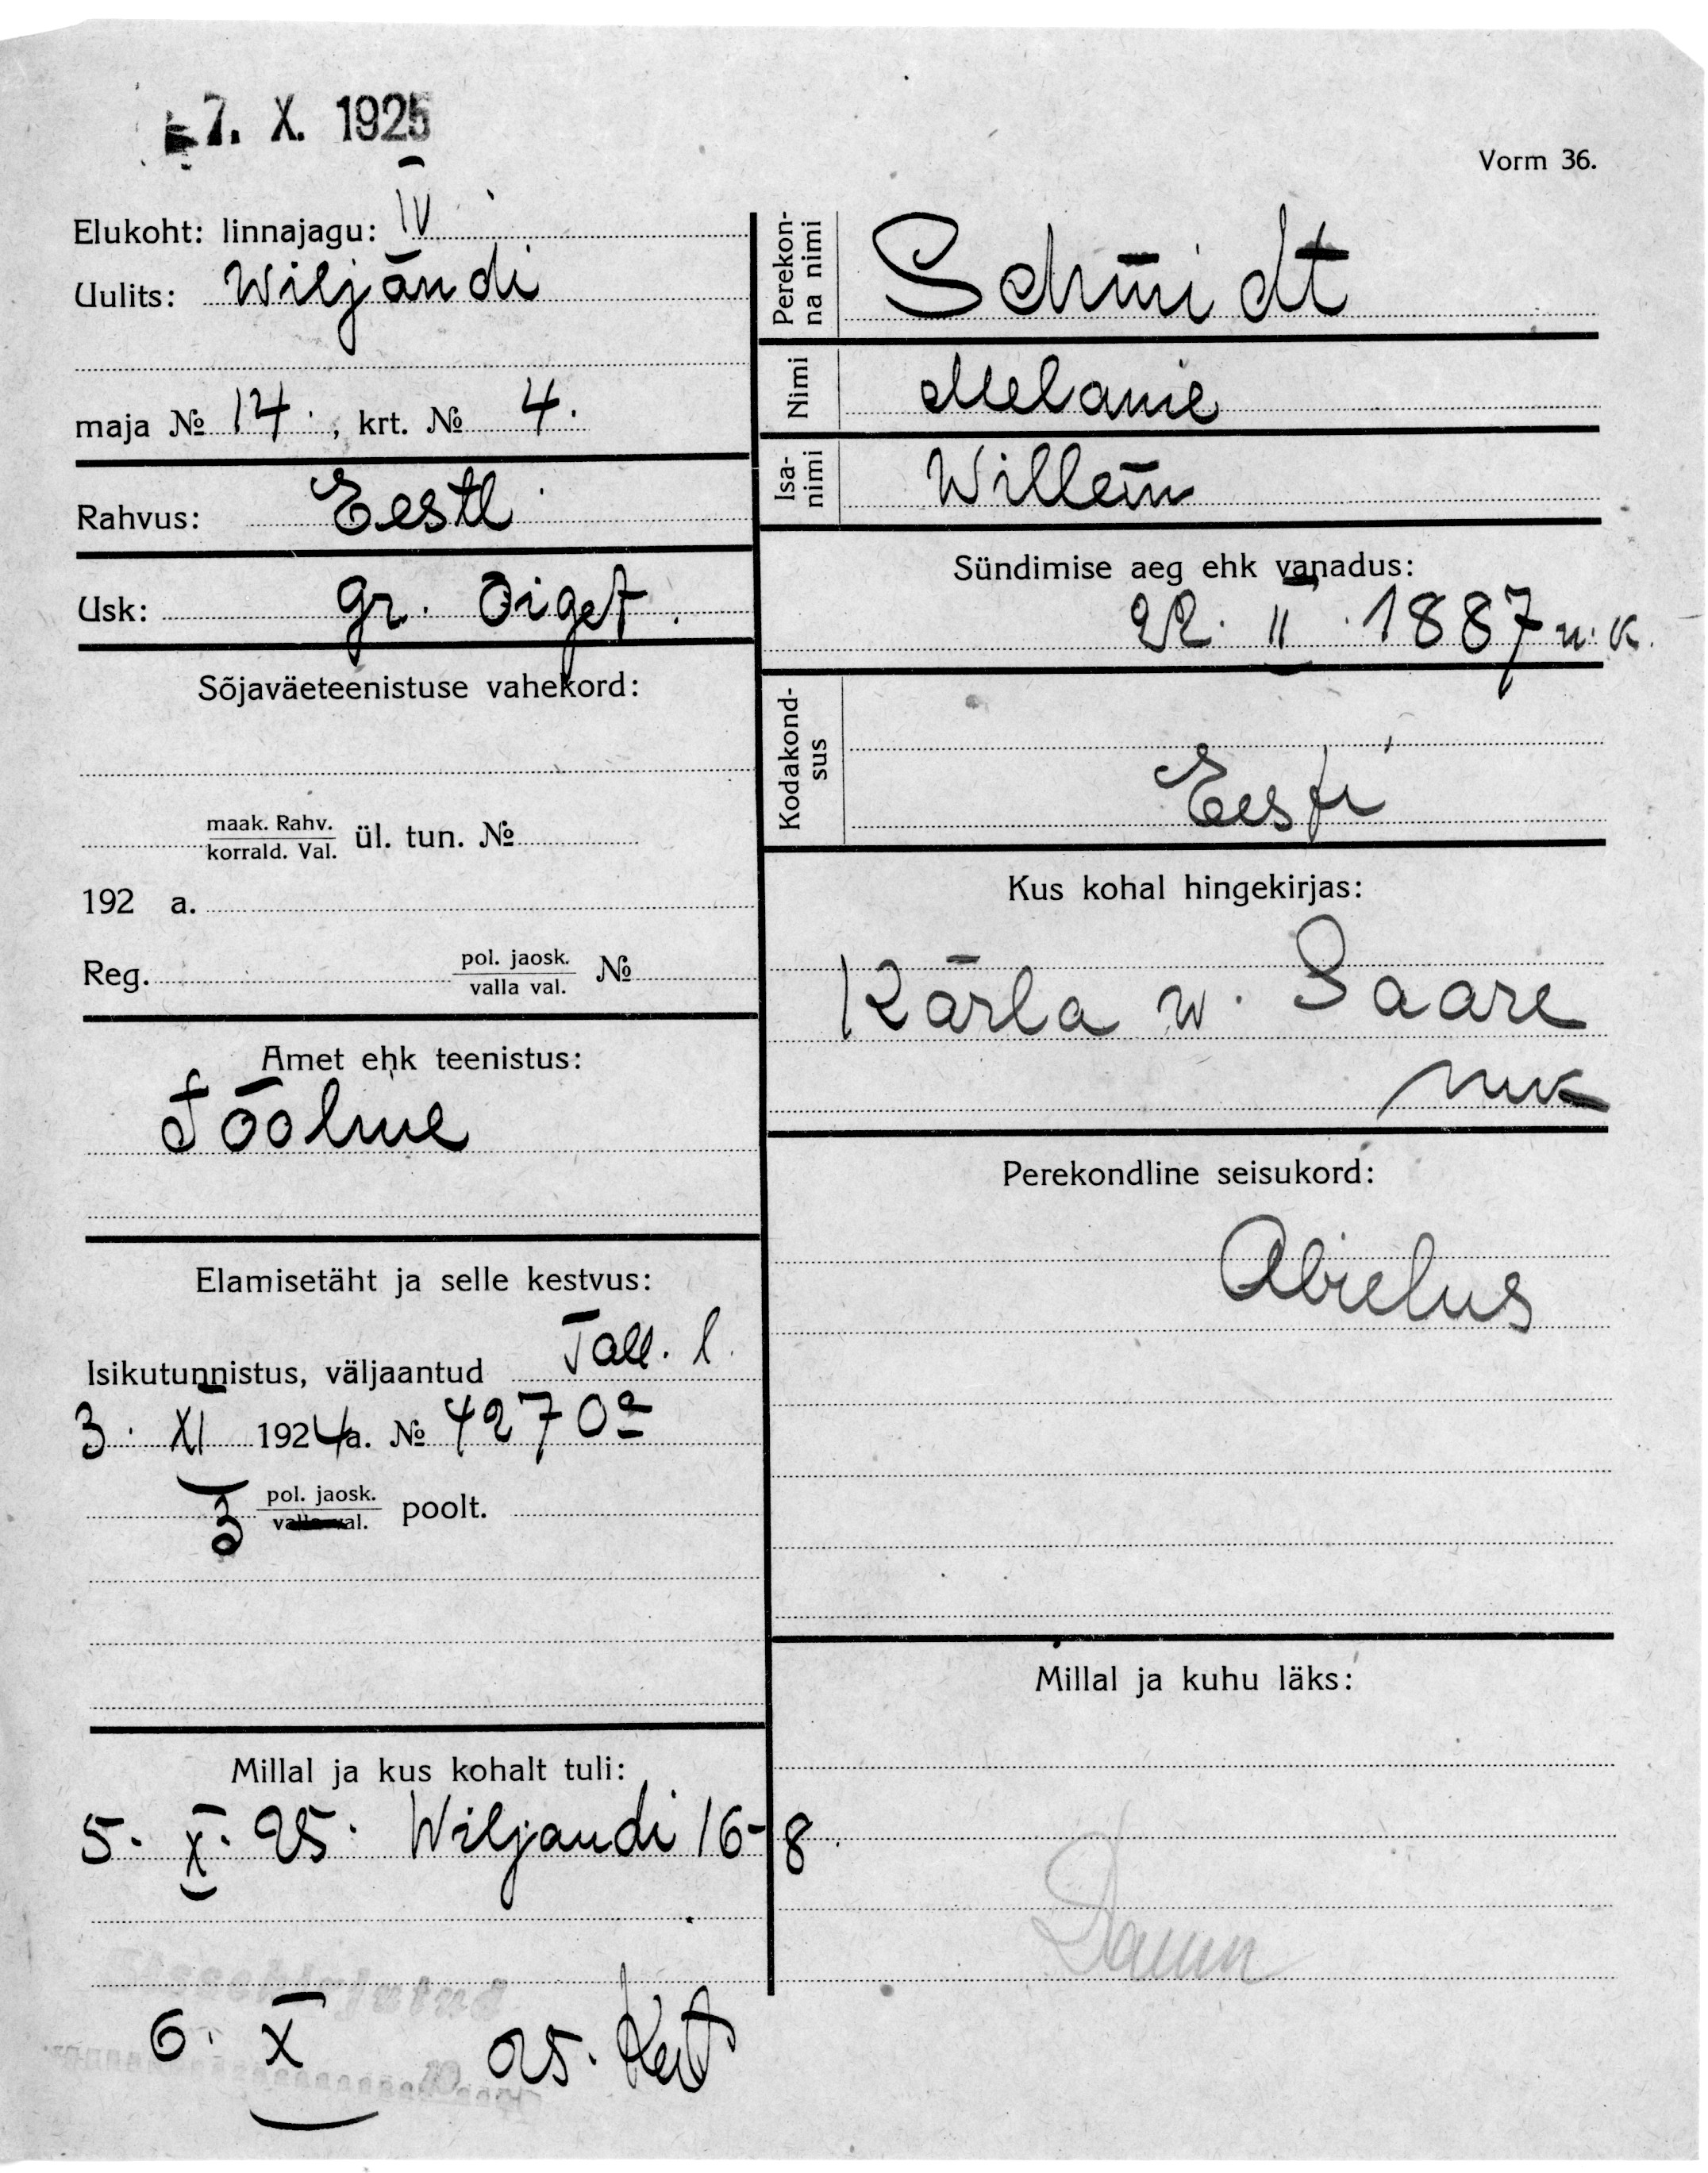 7. X. 1925
Vorm 36.
Elukoht: linnajagu: IV
Uulits: Wiljandi
maja № 14. , krt. № 4.
Rahvus: Eesti
Usk: gr. õiget.
Sõjaväeteenistuse vahekord:
maak. Rahv.
korrald. Val. ül. tun. №
192 a.
Reg. pol. jaosk.
valla val. №
Amet ehk teenistus:
Tööline
Elamisetäht ja selle kestvus:
Isikutunnistus, väljaantud Tall. l.
3. XI 1924a. № 4270
3 pol. jaosk.
valla val. poolt.
Millal ja kus kohalt tuli:
5. X. 25. Wiljandi 16-8.
6. X 25.
Perekon-
na nimi Schmidt
Nimi Melanie
Isa-
nimi Willem
Sündimise aeg ehk vanadus:
22. II. 1887 u. k.
Kodakond-
sus Eesti
Kus kohal hingekirjas:
Kärla w. Saare
mk
Perekondline seisukord:
Abielus
Millal ja kuhu läks: